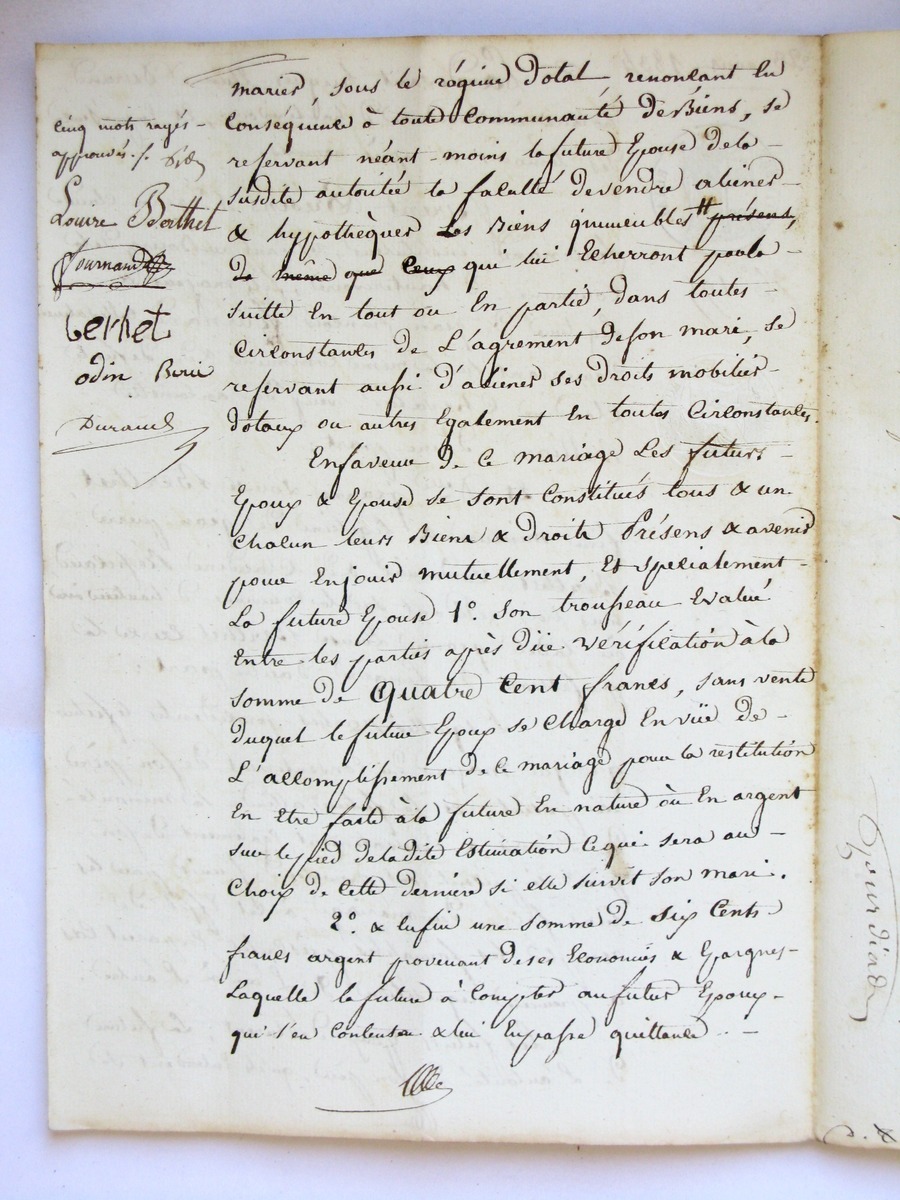 Cinq mots rayés
approuvés ./.
Louise Berthet
Fournand
berthet
odin
Durand
mariés, sous le régime dotal renoncant En
Conséquence à toute Communauté de Biens, se
reservant néant-moins la future Epouse de la
susdite autorité la faculté de vendre aliéner
& hypothèquer Les Biens immeubles # présens,
de même que ceux qui lui Echerront par la
suitte En tout ou En partie, dans toutes
Circonstances de L'agrement de son mari, se
reservant aussi d'aliéner ses droits mobilier
dotaux ou autres Egalement En toutes Circonstances.
En faveur de ce mariage Les futurs
Epoux & Epouse se sont Constitués tous & un
Chacun leurs Biens & Droits Présens & avenir
pour En jouir mutuellement, Et spécialement
La future Epouse 1º. son trousseau Evalué
Entre les parties après düe vérification à la
somme de quatre Cent francs, sans vente
duquel le futur Epoux se Charge En vüe de
L'accomplissement de ce mariage pour la restitution
En Etre faite à la future En nature ou En argent
sur le pied de la dite Estimation ce qui sera au
Choix de Cette dernière si elle survit son mari.
2º. & Enfin une somme de six Cents
francs argent provenant de ses Economies & Epargnes
Laquelle la future à Compter au futur Epoux
qui s'en Contente & lui En passe quittance.